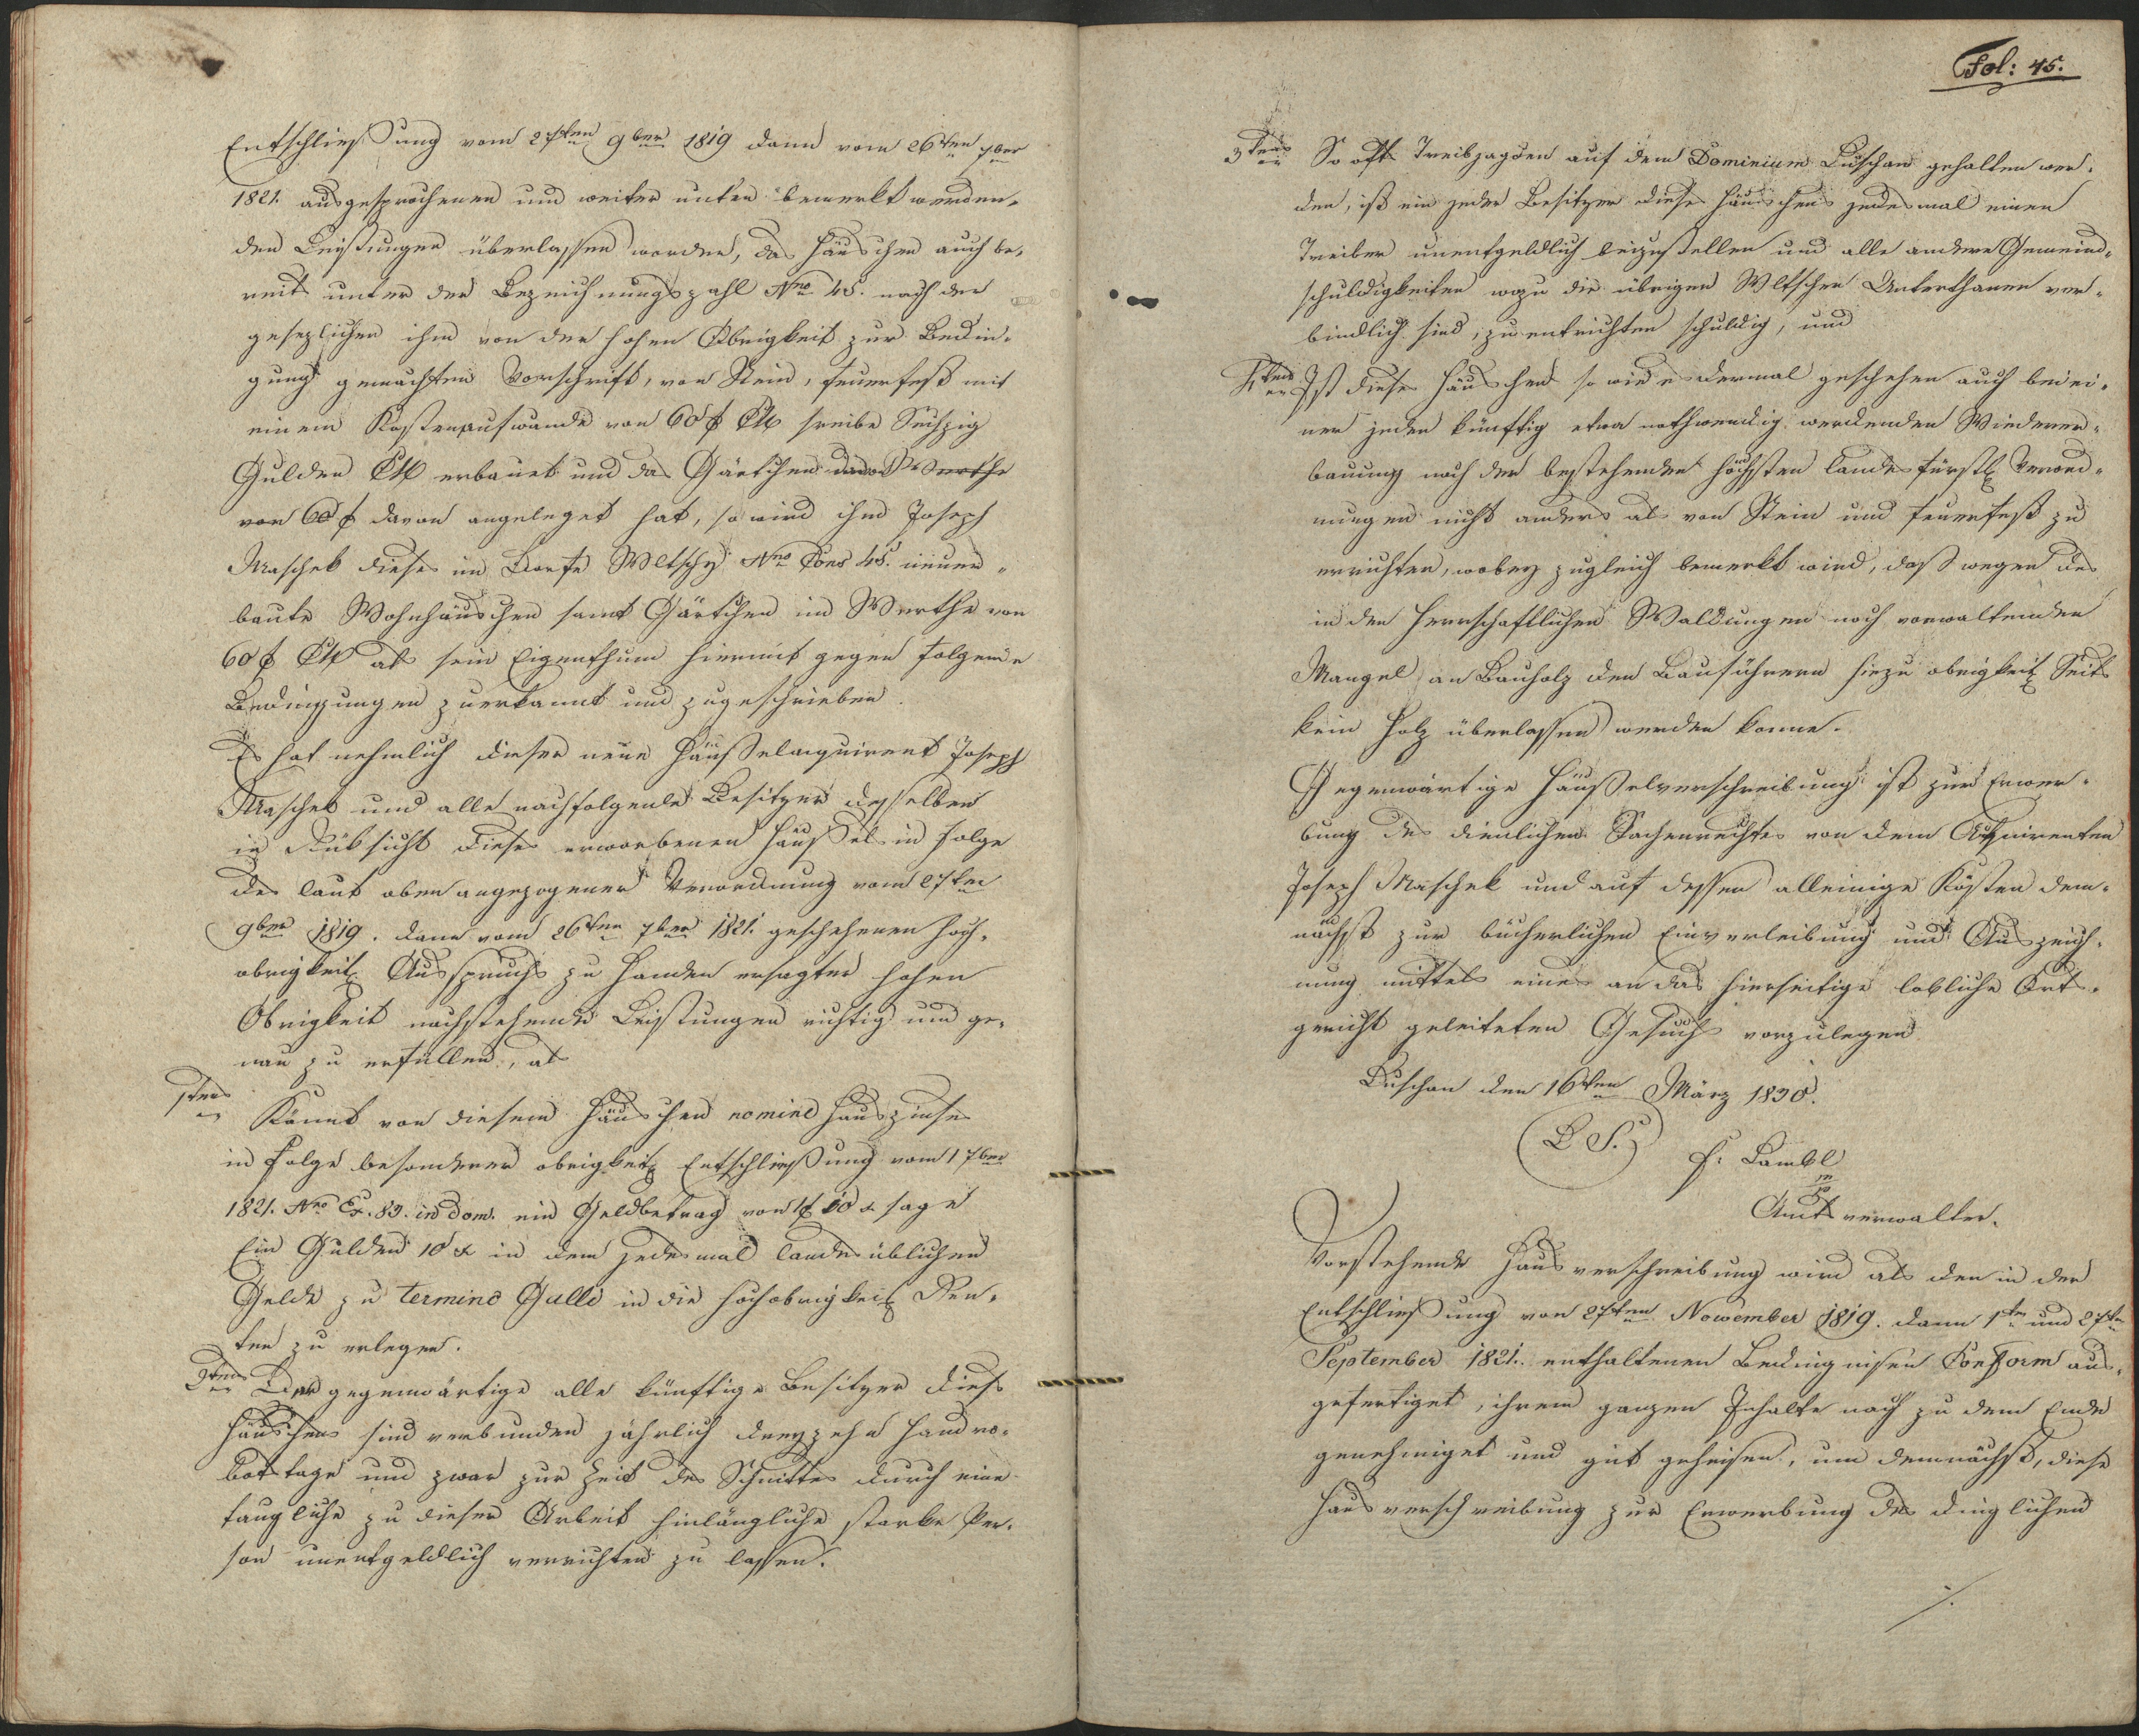 Entschließung vom 27ten 9ber 1819 dann vom 26ten 7ber
1821. ausgesprochenen und weiter unten bemerkt werden-
den Leistungen überlassen worden, das Häuschen auch be-
reits unter der Bezeichnungszahl Nro 45. nach der
gesezlichen ihm von der hohen Obrigkeit zur Bedin-
gung gemachten Vorschrift, von Stein, feuerfest mit
einem Kostenaufwande von 60 f CM schreibe Sechzig
Gulden CM erbauet und das Gärtchen davon Werthe
von 60 f davon angeleget hat, so wird ihm Joseph
Maschek dieses im Dorfe Wltschy Nro Cons 45. neuer-
baute Wohnhäuschen samt Gärtchen im Werthe von
60 f CM als sein Eigenthum hiermit gegen folgende
Bedingungen zuerkannt und zugeschrieben.
Es hat nehmlich dieser neue Häußelacquirent Joseph
Maschek und alle nachfolgende Besitzer desselben
in Rüksicht dieses erworbenen Häußels in Folge
des laut oben angezogener Verordnung vom 27ten
9ber 1819. dann vom 26ten 7ber 1821. geschehenen hoch-
obrigkeitl Ausspruchs zu Handen ersagter hohen
Obrigkeit nachstehende Leistungen richtig und ge-
nau zu erfüllen, als
1tens
Kömt von diesem Häuschen nomine Hauszinses
in Folge besonderer obrigkeitl Entschließung vom 1 7ber
1821. Nro Ex. 89. in dom. ein Geldbetrag von 1 f 10 x sage
Ein Gulden 10 x in dem jedesmal landesüblichen
Gelde zu termino Galli in die hochobrigkeitl Ren-
ten zu erlegen.
2tens Der gegenwärtige alle künftige Besitzer dieses
Häuschens sind verbunden jährlich dreyzehn Handro-
bottage und zwar zur Zeit des Schnittes durch eine
taugliche zu dieser Arbeit hinlängliche starke Per-
son unentgeldlich verrichten zu lassen.
Fol: 45.
3tens So oft Treibjagden auf dem Dominium Luschan gehalten wer-
den, ist ein jeder Besitzer dieses Häuschens jedesmal einen
Treiber unentgeldlich beizustellen und alle andere Gemeind-
schuldigkeiten wozu die übrigen Wltscher Unterthanen ver-
bindlich sind, zu entrichten schuldig, und
4tens Ist dieses Häuschen so wie es dermal geschehen auch bei ei-
ner jeden künftig etwa nothwendig werdenden Wiederer-
bauung nach den bestehenden höchsten landesfürstl Verord-
nungen nicht anders als von Stein und feuerfest zu
errichten, wobey zugleich bemerkt wird, daß wegen des
in den herrschaftlichen Waldungen noch vorwaltenden
Mangel an Bauholz den Bauführern hiezu obrigkeitl Seits
kein Holz überlassen werden könne.
Gegenwärtige Häußelverschreibung ist zur Erwer-
bung des dienlichen Sachenrechtes von dem Acquirenten
Joseph Maschek und auf dessen alleinige Kösten dem-
nächst zur bücherlichen Einverleibung und Auszeich-
nung mittels eines an das hierseitige löbliche Orts-
gericht geleiteten Gesuchs vorzulegen.
Luschan den 16ten März 1830.
(L. S.) F. Lambl
mp
Amtsverwalter.
Vorstehende Hausverschreibung wird als den in der
Entschließung von 27ten November 1819. dann 1ten und 27ten
September 1821. enthaltenen Bedingnisen Conform aus-
gefertiget, ihrem ganzen Inhalte nach zu dem Ende
genehmiget und gut geheisen, um demnächst, diese
Hausverschreibung zur Erwerbung des dinglichen
./.